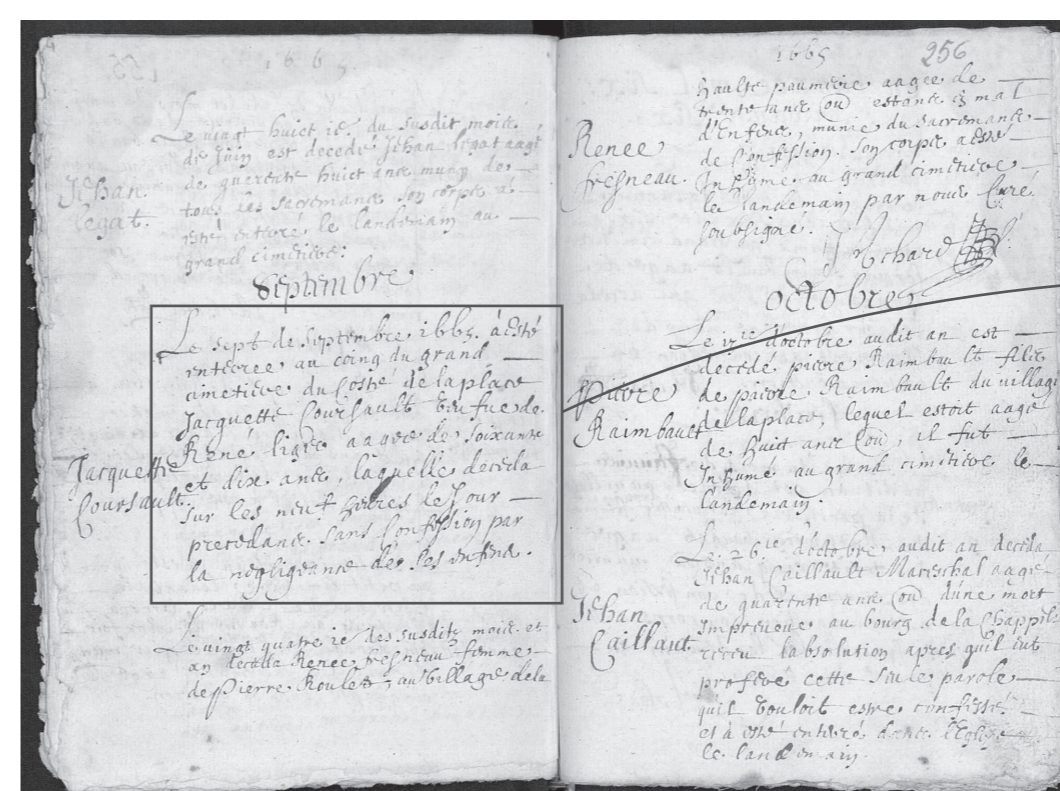 1665
Le vingt huict ie. du susdit mois
de Juin est decedé Jehan legat aagé
de quarente huict ans muny de
tous les sacremans son corps a
esté enterré le landemain au
grand cimetiere.
Jehan
legat.
Septembre
Le sept de Septembre 1665. a esté
enterree au coing du grand
cimetiere du Costé de la place
Jacquette Coursault veufue de
René ligée aagee de soixante
et dix ans, laquelle deceda
sur les neuf heures le Jour
precedant sans Confession par
la negligeance de ses enfens.
Jacquette
Coursault
Le vingt quatre ie des susdits mois et
an deceda Renee fresneau femme
de Pierre Roulet, au village de la
1665
256
haulte paumerie aagee de
trente ans ou estant
mal
d'Enfens, munie du Sacremans
de Confession. Son corps a esté
Inhumé au grand cimetiere
le landemain par nous Curé
soubsigné.
Renee
fresneau.
Octobre
Le 17ie d'octobre audit an est
decedé pierre Raimbault filz
de pierre Raimbault du village
de la place, lequel estoit aagé
de huict ans ou, il fut
Inhumé au grand cimetiere le
landemain
Pierre
Raimbault
Le 26ie d'octobre audit an deceda
Jehan Caillault Mareschal aagé
de quarente ans ou d'une mort
Impreveue au bourg de la Chappelle
receu l'absolution apres quil eut
proferé cette seule parole
quil vouloit estre confessé
et a esté enterré dans l'Eglise
le landemain.
Jehan
Caillaut